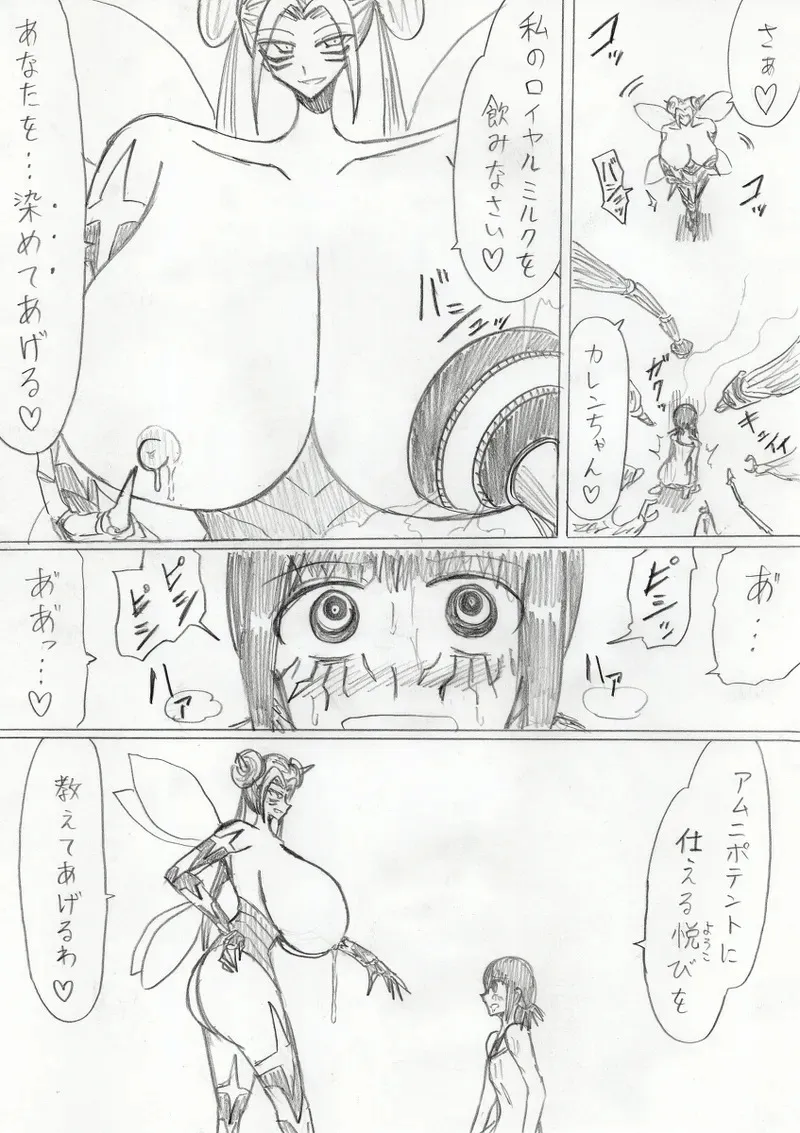 さぁ♡
コッ
コッ
バキッ
カレンちゃん♡
ガクッ
私のロイヤルミルクを
飲みなさい♡
あなたを…染めてあげる♡
あ゛…
ピシッ
ハァ
ピシ
ピシ
ハァ
あ゛あ゛っ…♡
アムニポテントに
仕える悦びを
ようこ
教えてあげるわ♡